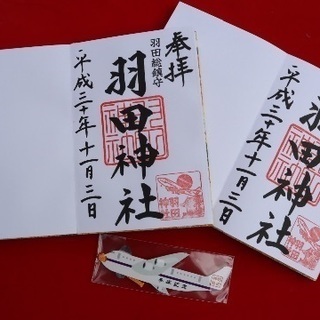 奉拝
羽田総鎮守
羽田神社
平成三十年十一月二日
羽田神
平成三十年十一月二日